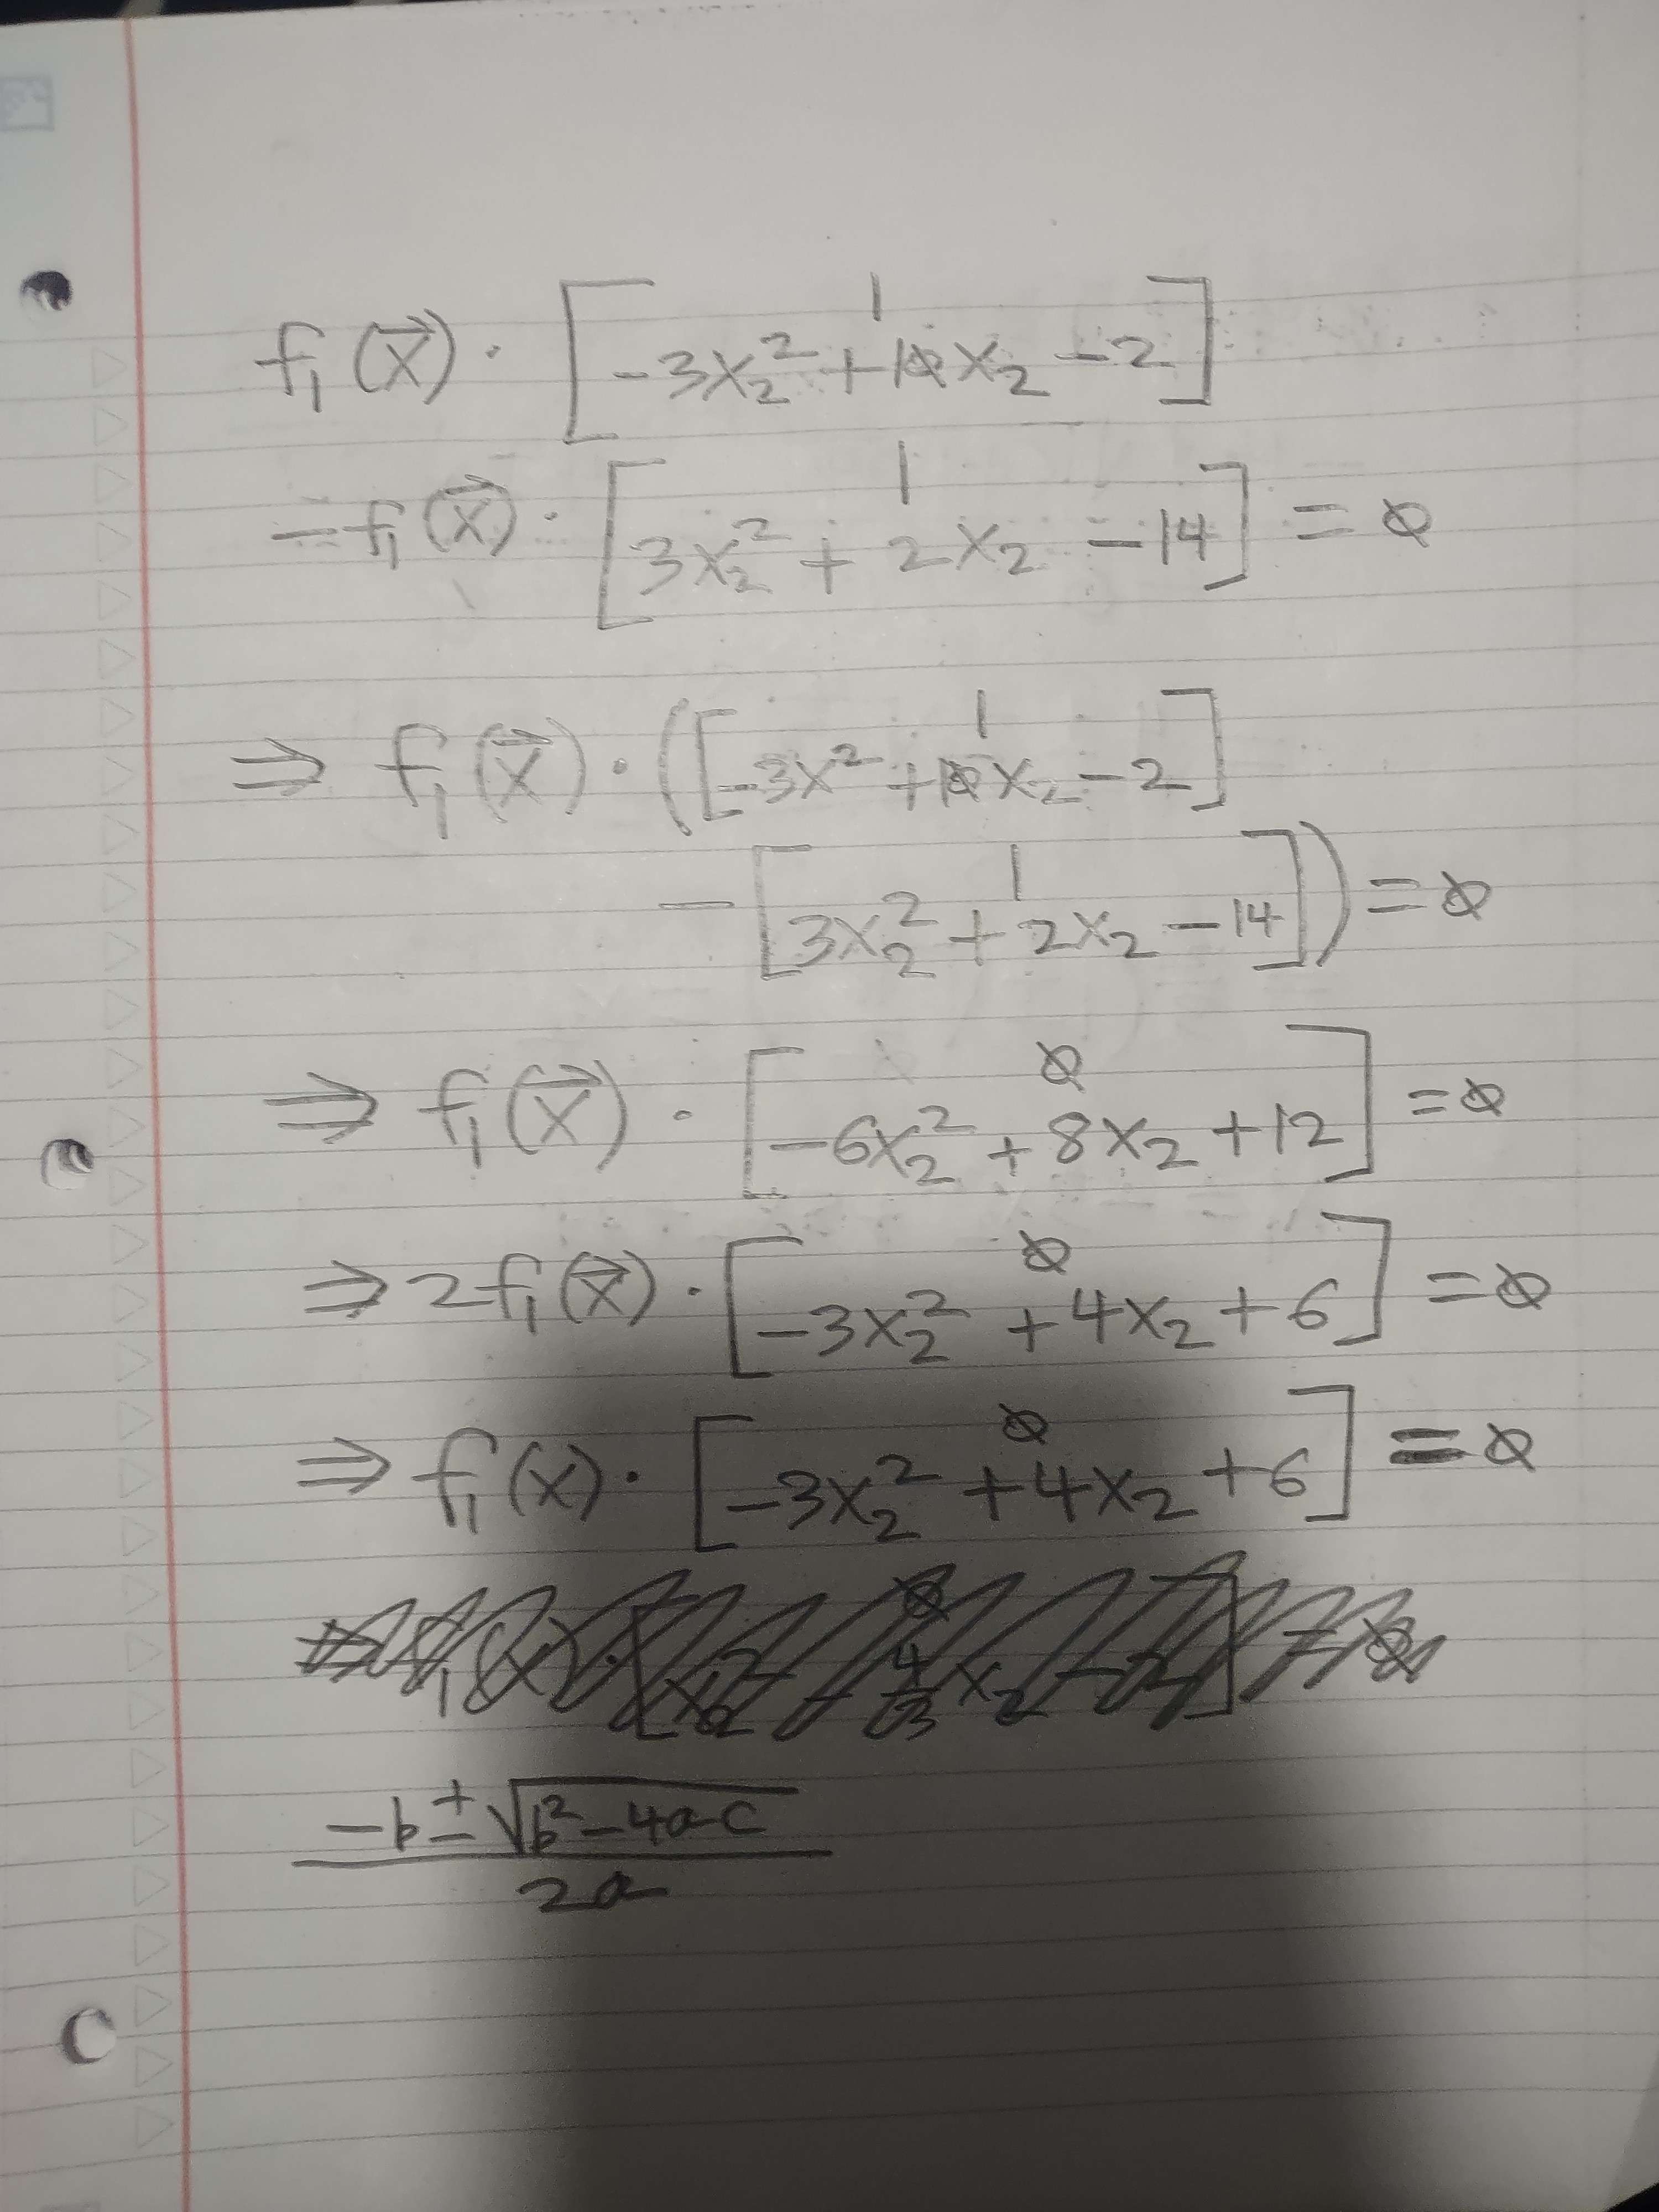 f₁(x⃗) · [1
-3x₂² + 10x₂ - 2]
- f₁(x⃗) · [1
3x₂² + 2x₂ - 14] = 0
⇒ f₁(x⃗) · ([1
-3x² + 10x₂ - 2]
- [1
3x₂² + 2x₂ - 14]) = 0
⇒ f₁(x⃗) · [0
-6x₂² + 8x₂ + 12] = 0
⇒ 2f₁(x⃗) · [0
-3x₂² + 4x₂ + 6] = 0
⇒ f₁(x) · [0
-3x₂² + 4x₂ + 6] = 0
-b ± √(b² - 4ac)
2a